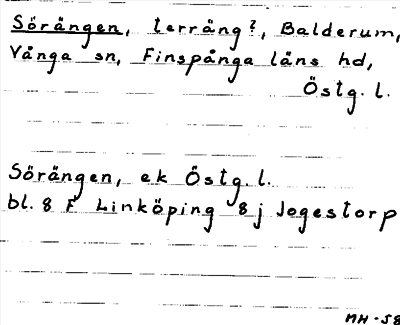 Sörängen, terräng?, Balderum,
Vånga sn, Finspånga läns hd,
Östg. l.
Sörängen, ek Östg. l.
bl. 8 F Linköping 8 j Jogestorp
MH-58